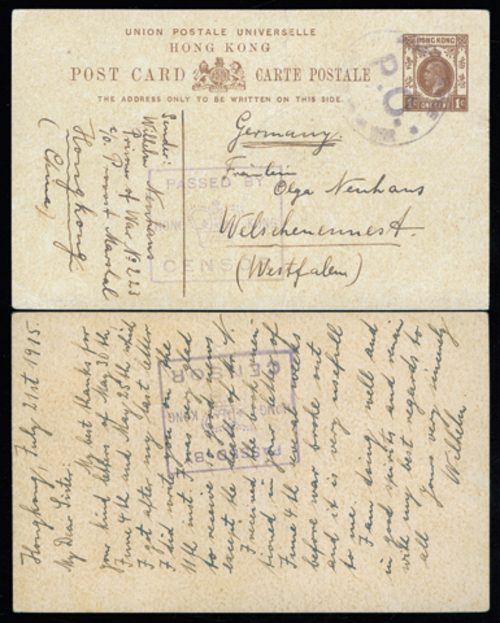 UNION POSTALE UNIVERSELLE
HONG KONG
POST CARD CARTE POSTALE
THE ADDRESS ONLY TO BE WRITTEN ON THIS SIDE.
HONG KONG
1C ONE CENT 1C
P.O.
Sender:
Wilhelm Neuhaus
Prisoner of War No 223
c/o Provost Marshal
Hongkong
(China)
Germany.
Fräulein
Olga Neuhaus
Welschenennest.
(Westfalen)
PASSED BY
HONG KONG
CENSOR
Hongkong, July 21st 1915
My dear Sister.
My best thanks for
your kind letters of May 30th
June 4th and May 25th which
I got after my last letter
I did write you on the
11th inst. I was very glad
to receive so good news
except the death of
I received the book men-
tioned in your letter of
June 4th in at weeks
before war broke out
and it is very usefull
to me. I am doing well and
in good spirits and remain
with my best regards to
all
yours very sincerely
Wilhelm.
PASSED BY
HONG KONG
CENSOR